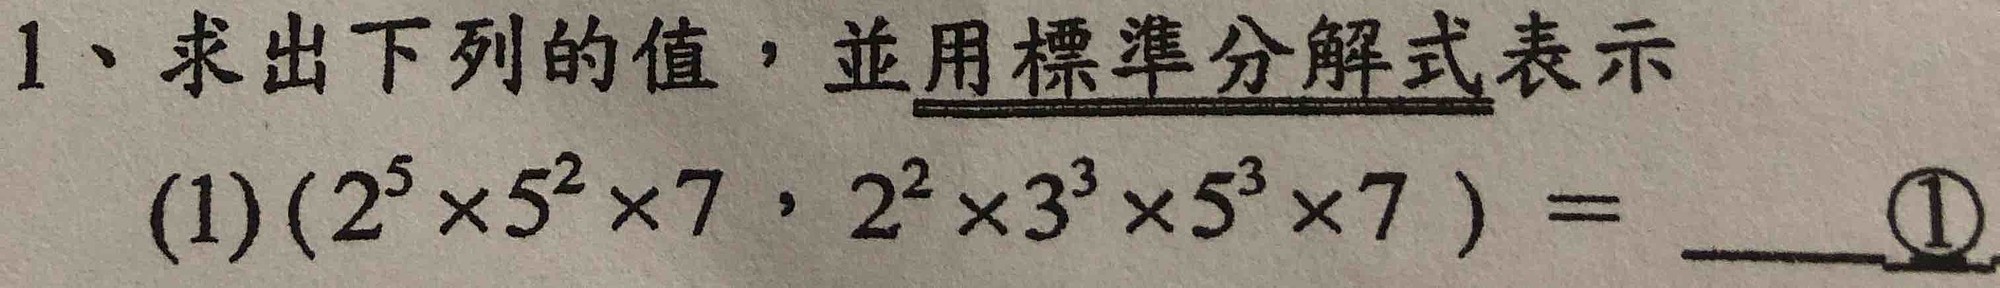 1、求出下列的值，並用標準分解式表示
(1)(2⁵×5²×7，2²×3³×5³×7)=____①